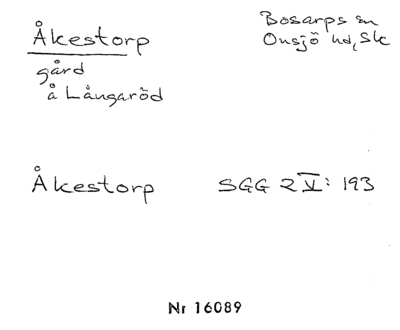 Åkestorp
gård
å Långaröd
Bosarps sn
Onsjö hd, Sk
Åkestorp SGG 2 V: 193
Nr 16089